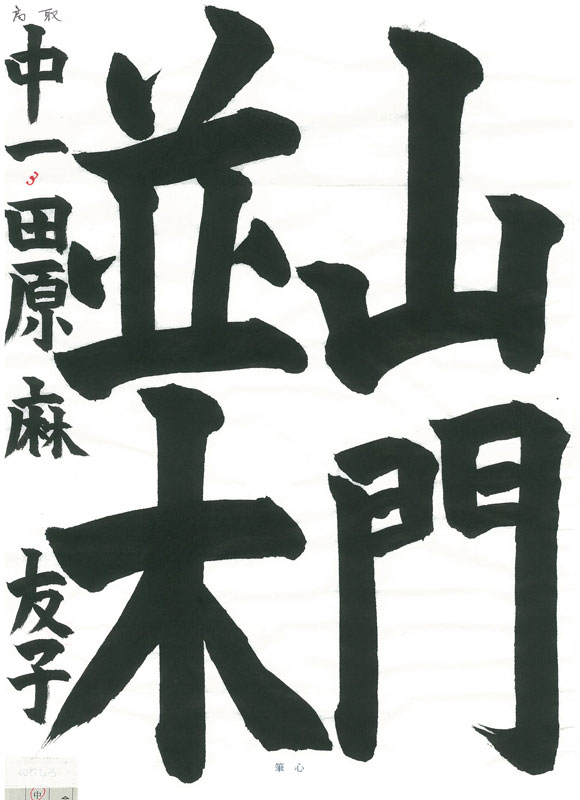 山門
並木
中一田原麻友子
高取
3
筆心
中